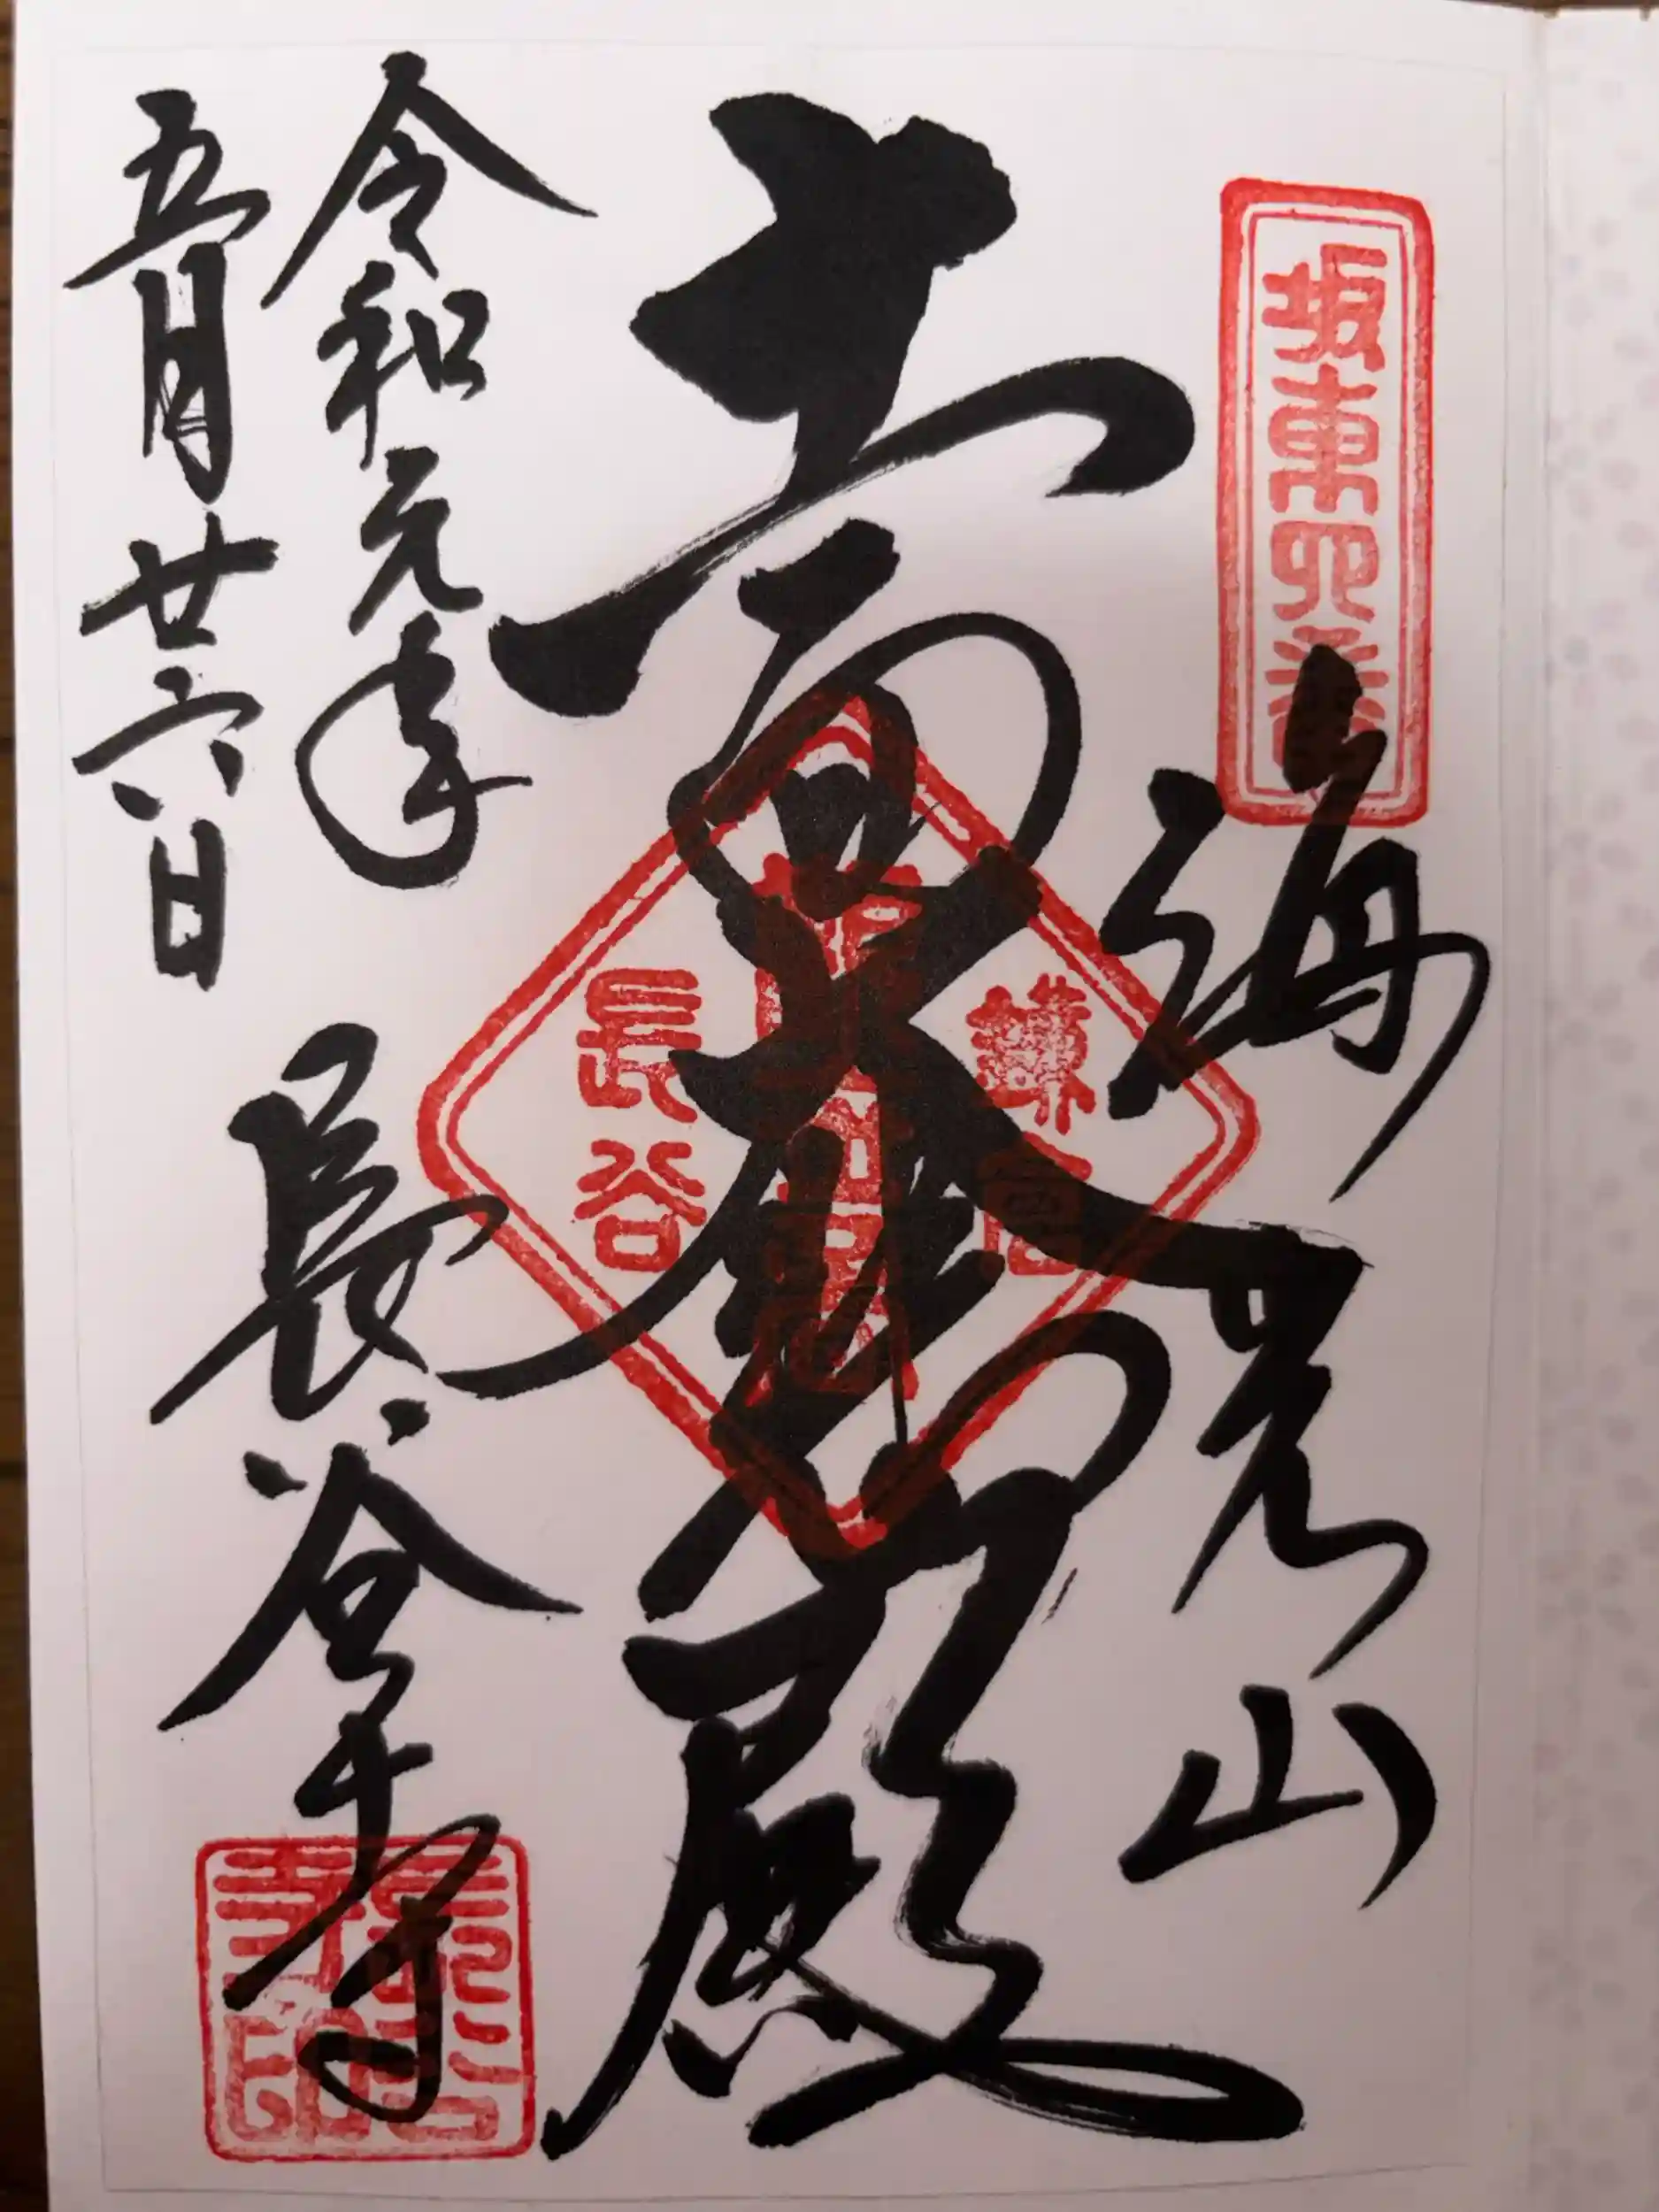 坂東四番
海光山
十一面大悲殿
鎌倉
長谷
令和元年
五月廿六日
長谷寺
長谷寺印